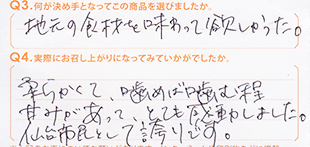 Q3.何が決め手となってこの商品を選びましたか。
地元の食材を味わって欲しかった。
Q4.実際にお召し上がりになってみていかがでしたか。
柔らかくて、噛めば噛む程
甘みがあって、とても感動しました。
仙台市民として誇りです。